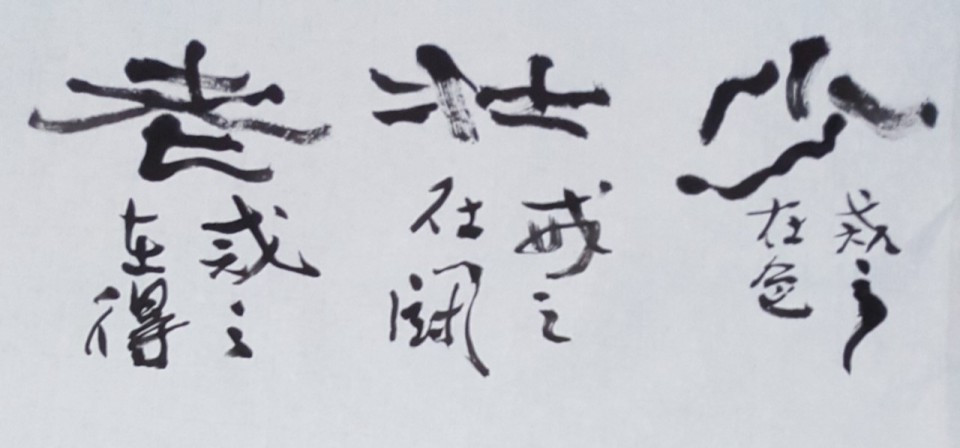 少
戒之
在色
壮
戒之
在闘
老
戒之
在得